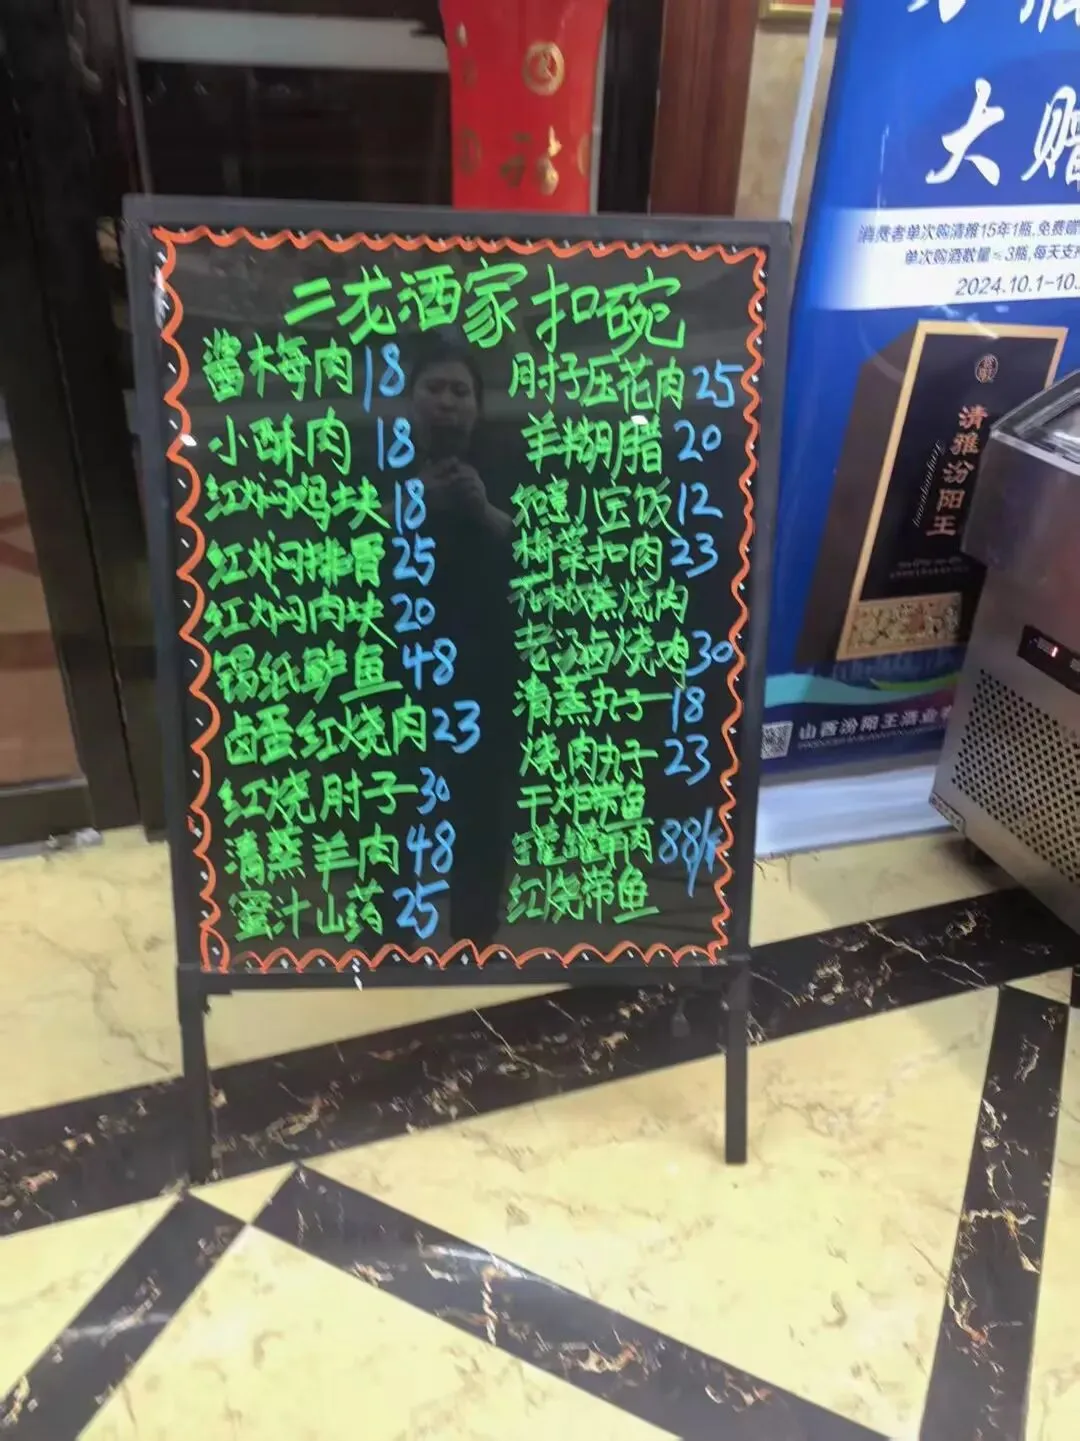 二龙酒家扣碗
酱梅肉18
小酥肉18
红焖鸡块18
红焖排骨25
红焖肉块20
锡纸鲈鱼48
卤蛋红烧肉23
红烧肘子30
清蒸羊肉48
蜜汁山药25
肘子压花肉25
羊糊腊20
八宝饭12
梅菜扣肉23
烧肉
老汤卤烧鸡30
清蒸丸子18
烧肉丸子23
干炸带鱼
肉88/
红烧带鱼
大赠
消费者单次购清雅15年1瓶,免费赠
单次购酒数量≤3瓶,每天支持
2024.10.1-10.
清雅汾阳王
山西汾阳王酒业